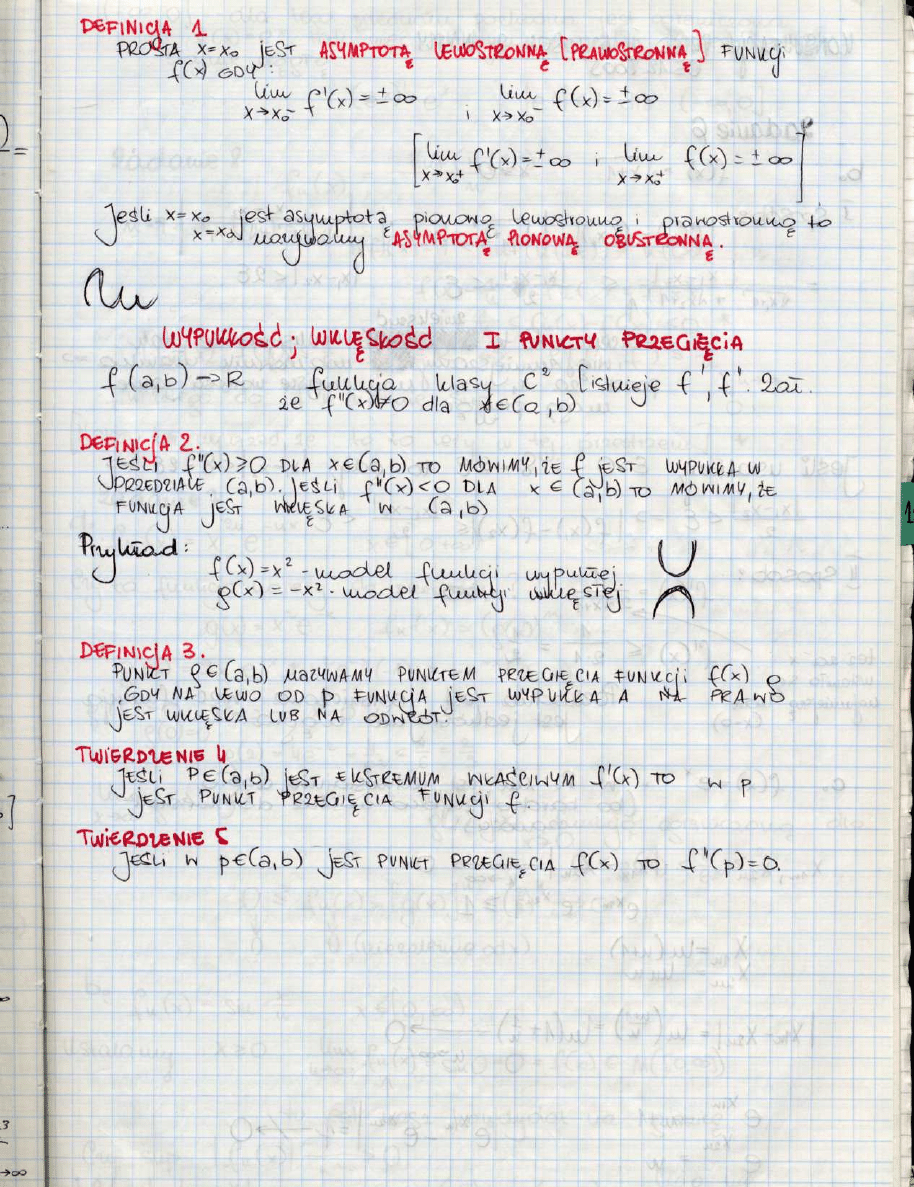 DEFINICJA 1
PROSTA x=x₀ JEST ASYMPTOTĄ LEWOSTRONNĄ [PRAWOSTRONNĄ] FUNKCJI
f(x) GDY:
lim x→x₀⁻ f'(x)=±∞ i lim x→x₀⁻ f(x)=±∞
[lim x→x₀⁺ f'(x)=±∞ i lim x→x₀⁺ f(x)=±∞].
Jeśli x=x₀ jest asymptotą pionową lewostronną i prawostronną to
x=x₀ nazywamy ASYMPTOTĄ PIONOWĄ OBUSTRONNĄ.
WYPUKŁOŚĆ; WKLĘSŁOŚĆ I PUNKTY PRZEGIĘCIA
f(a,b)→R funkcja klasy C² [istnieje f', f'. Zał.
że f''(x)≠0 dla x∈(a,b)
DEFINICJA 2.
JEŚLI f''(x)≥0 DLA x∈(a,b) TO MÓWIMY, ŻE f JEST WYPUKŁA W
PRZEDZIALE (a,b). JEŚLI f''(x)<0 DLA x∈(a,b) TO MÓWIMY, ŻE
FUNKCJA JEST WKLĘSŁA W (a,b)
Przykład:
f(x)=x² - model funkcji wypukłej
g(x)=-x² - model funkcji wklęsłej
DEFINICJA 3.
PUNKT p∈(a,b) NAZYWAMY PUNKTEM PRZEGIĘCIA FUNKCJI f(x)
GDY NA LEWO OD p FUNKCJA JEST WYPUKŁA A NA PRAWO
JEST WKLĘSŁA LUB NA ODWRÓT.
TWIERDZENIE 4
JEŚLI P∈(a,b) JEST EKSTREMUM WŁAŚCIWYM f'(x) TO W P
JEST PUNKT PRZEGIĘCIA FUNKCJI f.
TWIERDZENIE 5
JEŚLI W p∈(a,b) JEST PUNKT PRZEGIĘCIA f(x) TO f''(p)=0.